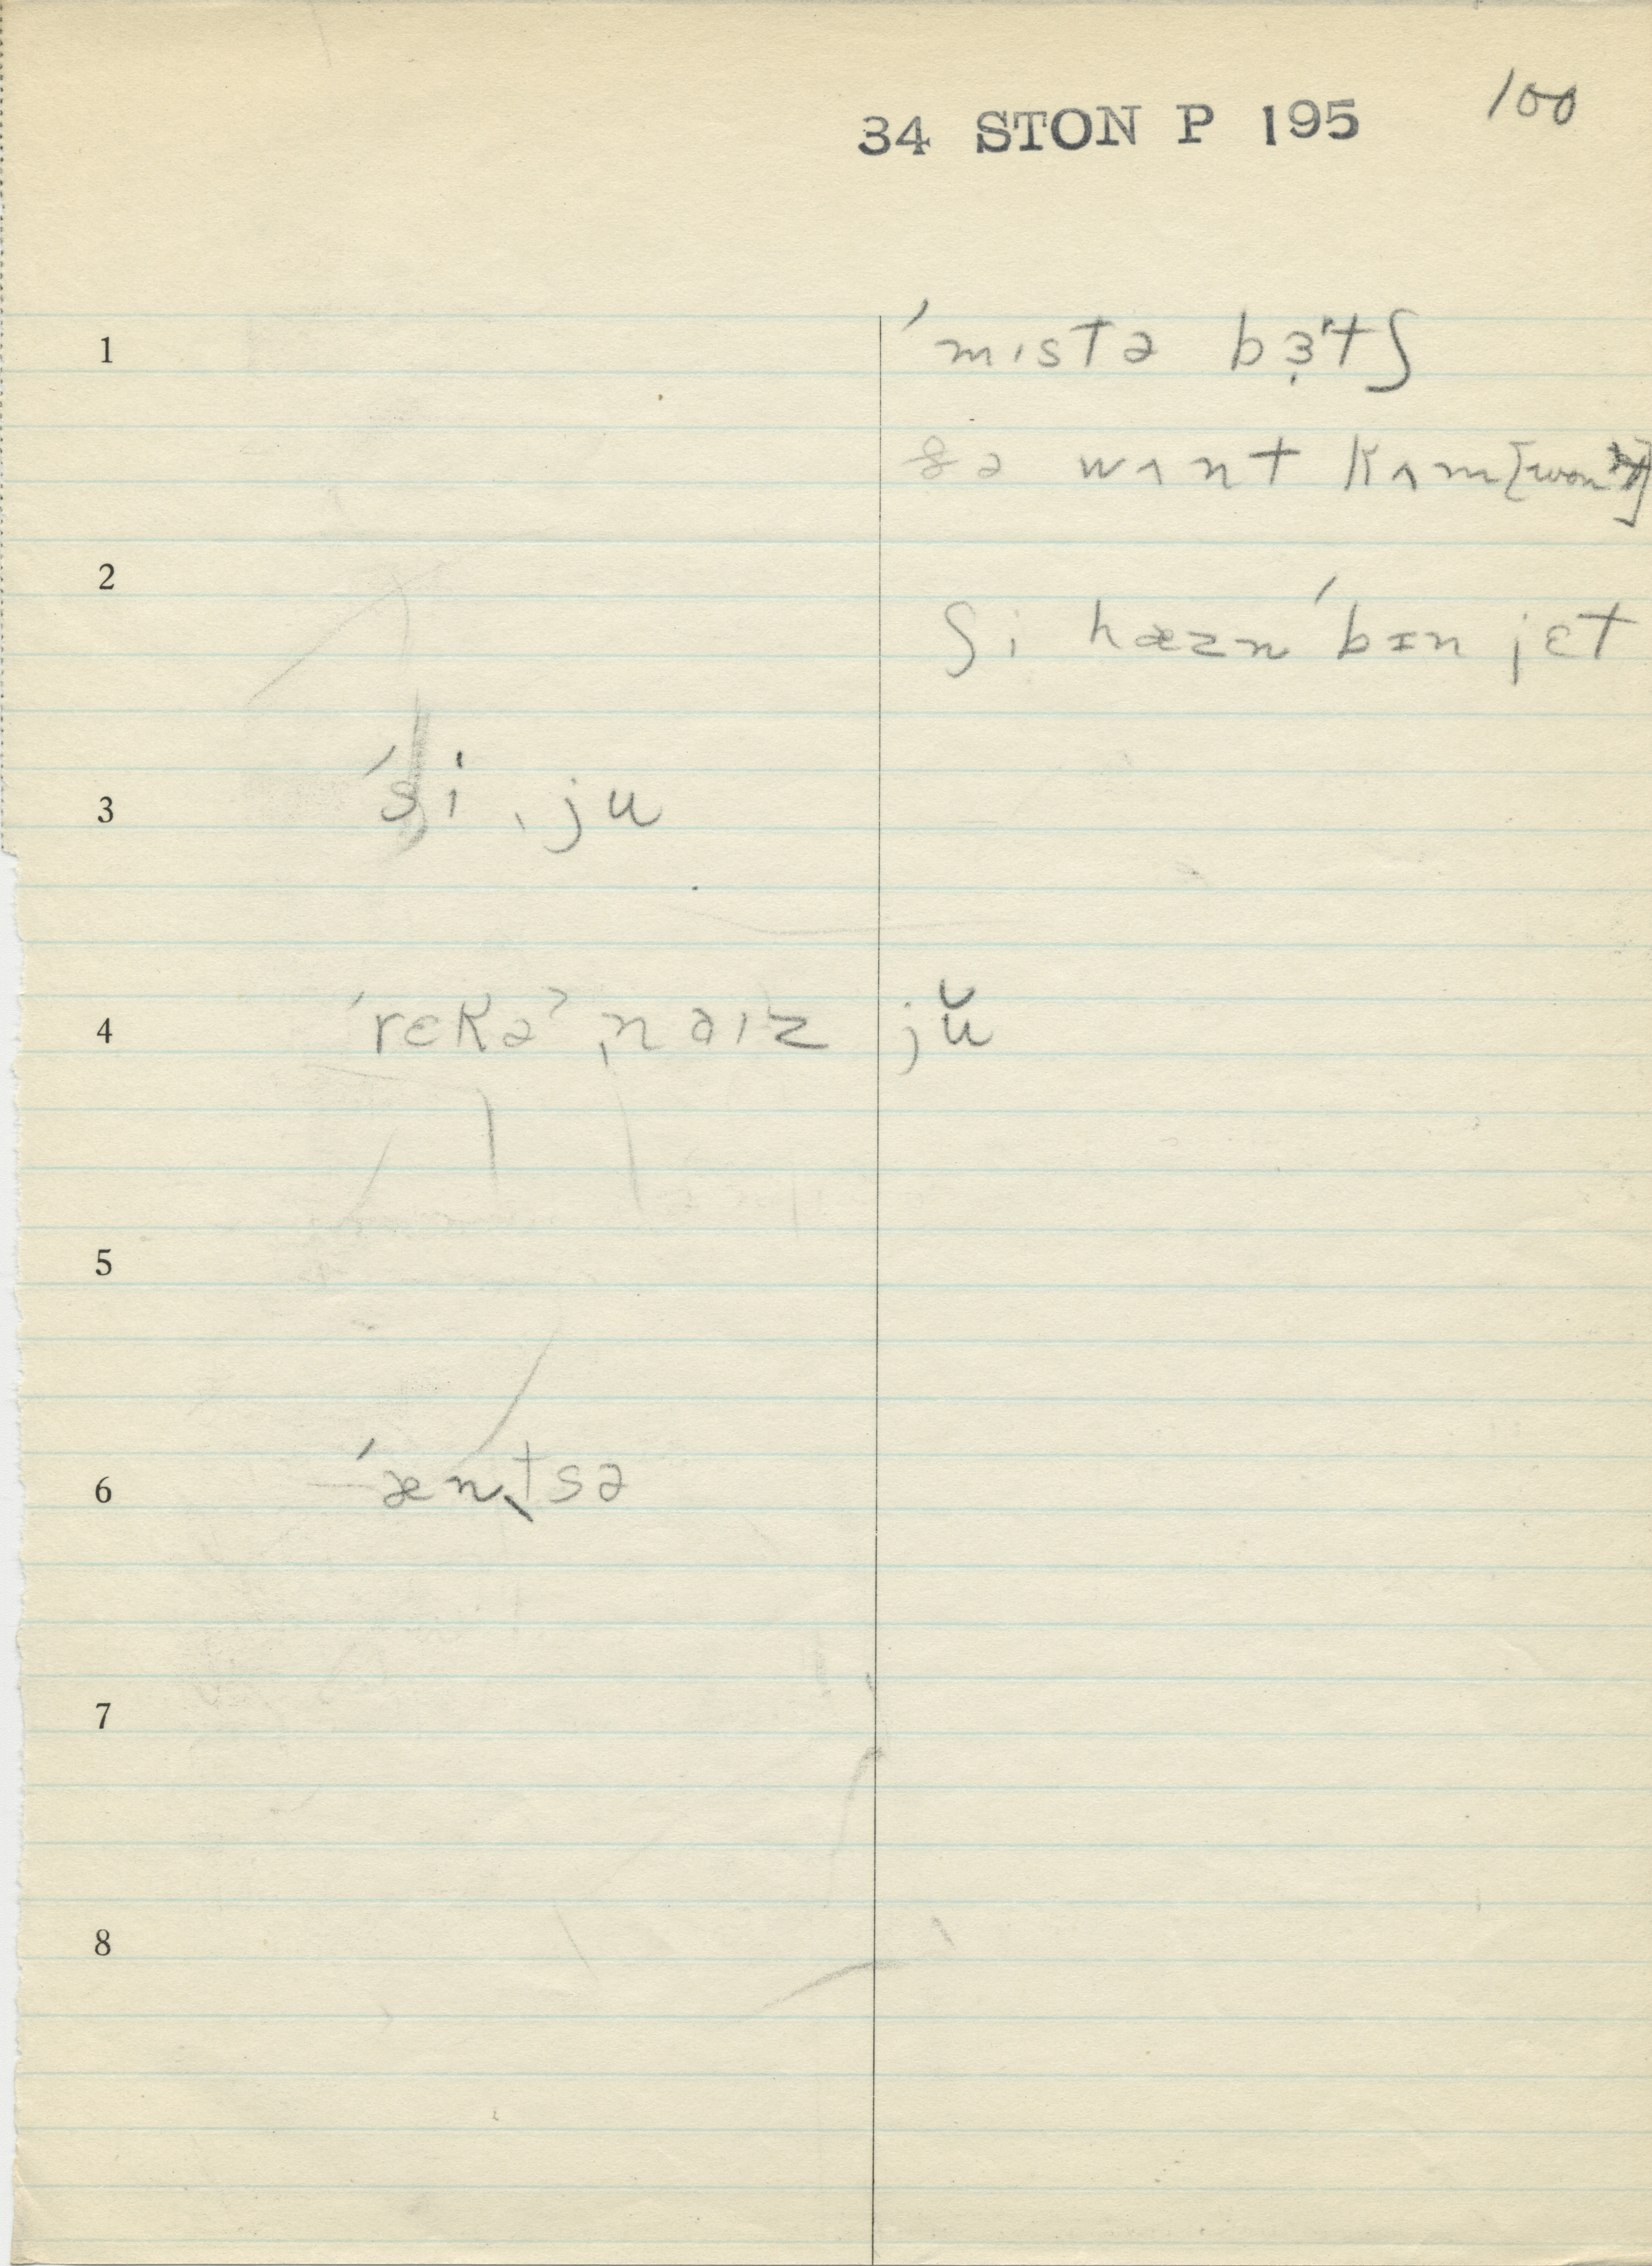 34 STON P 195 100
1 ˈmɪstə bɜ̣ˑtʃ
ðə wʌnt kʌm [won't]
2
ʃi hæznˈbɪn jɛt
3 ˈsi ˌju
4 ˈrɛkəˀˌnaɪz jŭ
5
6 ˈænˌtsə
7
8